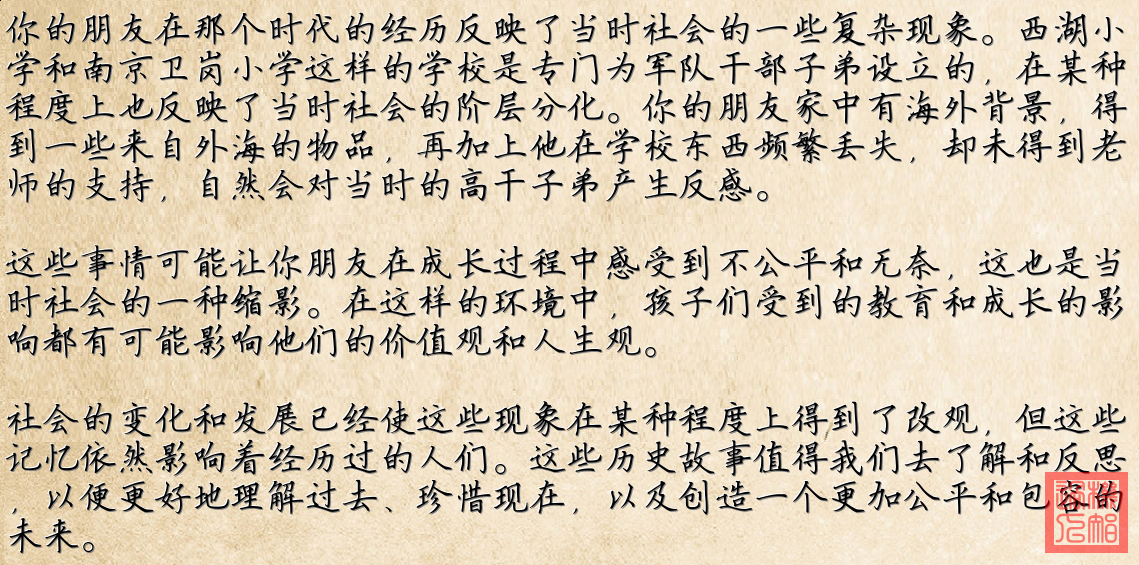 你的朋友在那个时代的经历反映了当时社会的一些复杂现象。西湖小
学和南京卫岗小学这样的学校是专门为军队干部子弟设立的，在某种
程度上也反映了当时社会的阶层分化。你的朋友家中有海外背景，得
到一些来自外海的物品，再加上他在学校东西频繁丢失，却未得到老
师的支持，自然会对当时的高干子弟产生反感。
这些事情可能让你朋友在成长过程中感受到不公平和无奈，这也是当
时社会的一种缩影。在这样的环境中，孩子们受到的教育和成长的影
响都有可能影响他们的价值观和人生观。
社会的变化和发展已经使这些现象在某种程度上得到了改观，但这些
记忆依然影响着经历过的人们。这些历史故事值得我们去了解和反思
，以便更好地理解过去、珍惜现在，以及创造一个更加公平和包容的
未来。